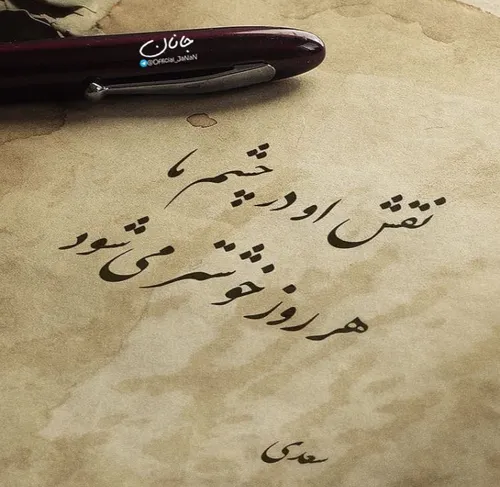 جانان
@Official_JaNaN
نقش او در چشم ما
هر روز خوشتر می‌شود
سعدی